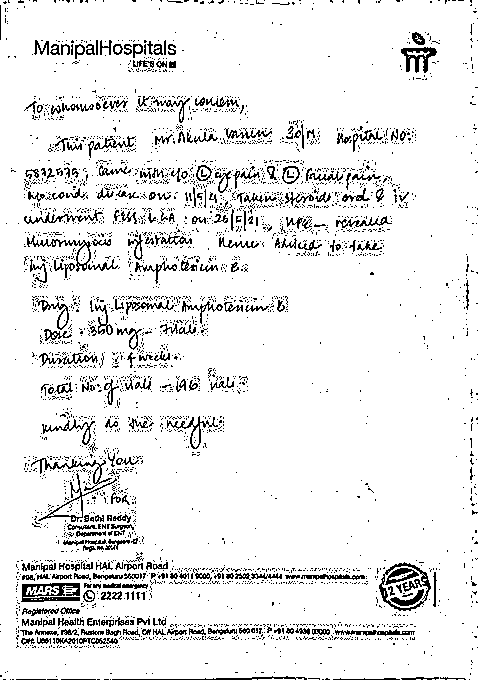 ManipalHospitals
LIFE'S ON
To whomsoever it may concern,
This patient Mr. Akula 30/M Hospital No:
5832575, came with c/o (L) eye pain & (L) facial pain,
on 11/5/21, Taken steroids oral & iv
underwent FESS on 25/5/21, HPE - revealed
Mucormycosis Hence Advised to take
Inj Liposomal Amphotericin B.
Drug: Inj Liposomal Amphotericin B
Dose - 350 mg - 7 Vials
Duration: 4 weeks.
Total No: of Vials - 196 Vials
Kindly do the needful
Thanking You
For
Dr. Sathi Reddy
Consultant, ENT Surgeon
Department of ENT
Manipal Hospital HAL Airport Road
#98, HAL Airport Road, Bengaluru 560017 P +91 80 4011 9000, +91 80 2502 3344/4444 www.manipalhospitals.com
MARS For any medical emergency
2222 1111
Registered Office
Manipal Health Enterprises Pvt Ltd
The Annexe, #98/2, Rustom Bagh Road, Off HAL Airport Road, Bengaluru 560 017 P +91 80 4936 0300 www.manipalhospitals.com
YEARS